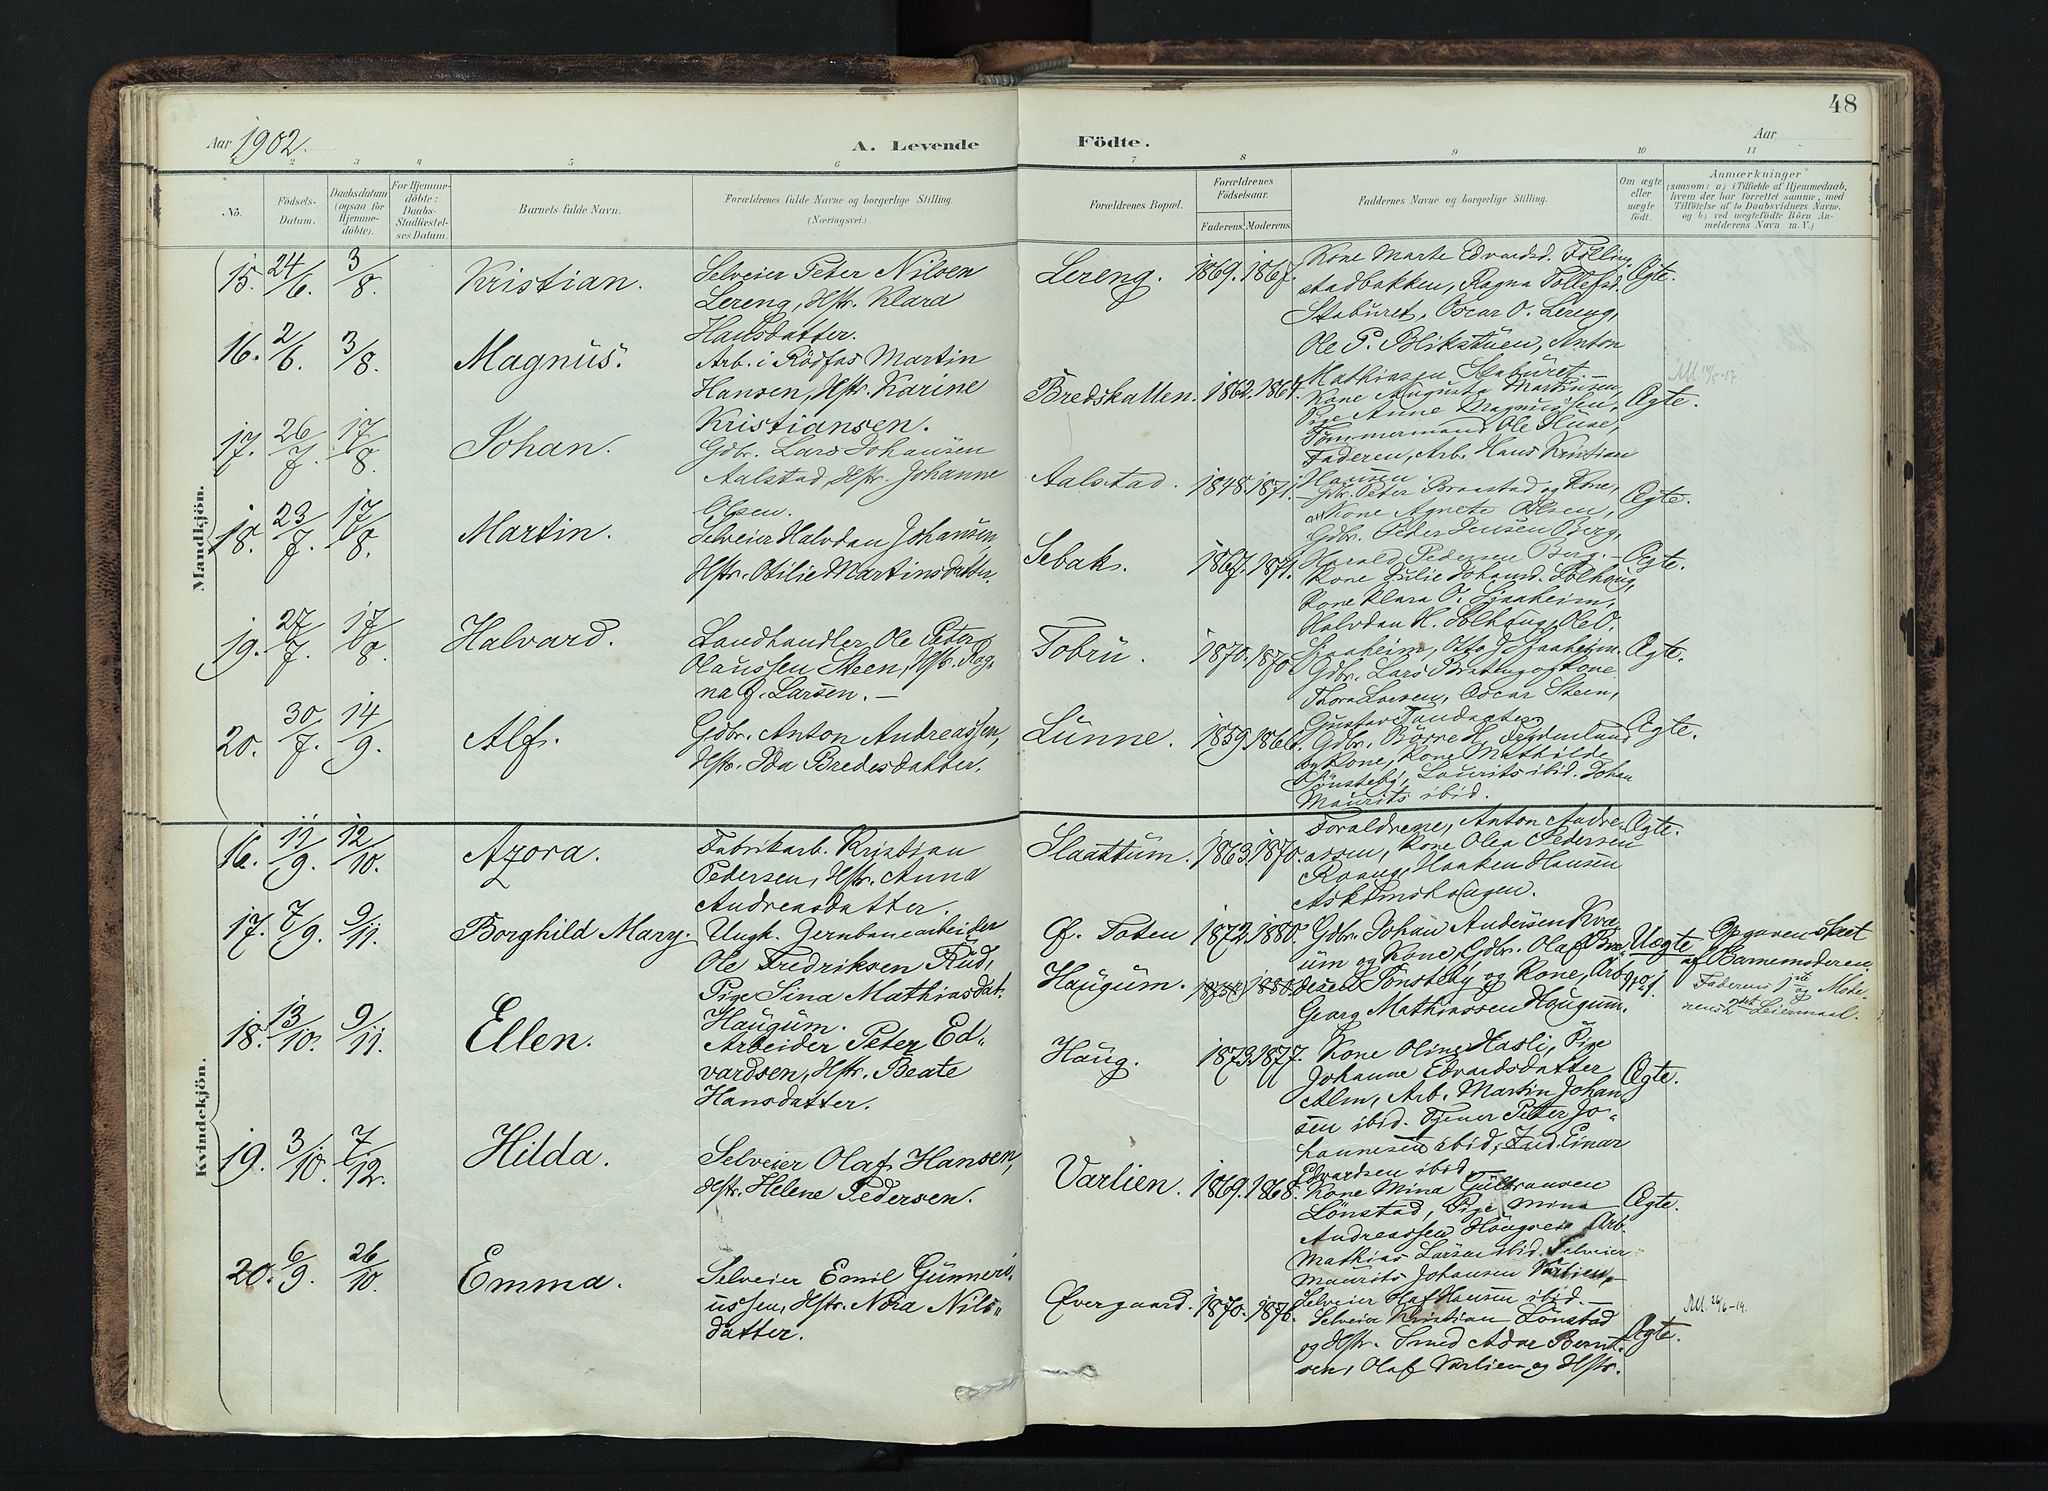 48
Aar 1902.
A. Levende Födte.
Aar
1 2 3 4 5 6 7 8 9 10 11
No.
Födsels-Datum.
Daabsdatum (ogsaa for Hjemme-döbte).
For Hjemme-döbte: Daabs-Stadfæstel-ses Datum.
Barnets fulde Navn.
Forældrenes fulde Navne og borgerlige Stilling. (Næringsvei.)
Forældrenes Bopæl.
Forældrenes Födselsaar.
Faderens. Moderens.
Faddernes Navne og borgerlige Stilling.
Om ægte eller uægte födt.
Anmærkninger
(saasom: a) i Tilfælde af Hjemmedaab,
hvem der har forrettet samme, med
Tilföielse af to Daabsvidners Navne,
og b) ved uægtefödte Börn An-
melderens Navn m. V.)
Mandkjön.
15. 24/6. 3/8. Kristian.
Selveier Peter Nilsen
Lereng, Hstr. Klara
Hansdatter.
Lereng. 1869. 1867.
Kone Marte Edvardsd. Fölling
stadbakken, Ragna Tollefsd.
Staburet, Oscar O. Lereng,
Ole P. Blikstuen, Anton
Mathiasen Staburet.
Ægte.
16. 2/6. 3/8. Magnus.
Arb. i Rödfos Martin
Hansen, Hstr. Karine
Kristiansen.
Bredskallen. 1862. 1864.
Kone Augusta Martinsen,
Pige Anne Magnussen,
Tömmermand Ole Huse,
Faderen, Arb. Hans Kristian
Hansen
Ægte.
17. 26/7. 17/8. Johan.
Gdbr. Lars Johansen
Aalstad, Hstr. Johanne
Olsen.
Aalstad. 1848. 1871.
Gdbr. Peter Braastad og Kone,
Kone Agnete Olsen,
Gdbr. Peder Jensen Berg,
Harald Pedersen Berg. —
Ægte.
18. 23/7. 17/8. Martin.
Selveier Halvdan Johansen,
Hstr. Otilie Martinsdatter.
Sebak. 1867. 1871.
Kone Julie Johansd. Solhaug,
Kone Klara O. Sjaaheim,
Halvdan H. Solhaug, Ole O.
Sjaaheim, Otto J. Sjaaheim.
Ægte.
19. 27/7. 17/8. Halvard.
Landhandler Ole Peter
Olaussen Steen, Hstr. Rag-
na J. Larsen. —
Tobru. 1870. 1870.
Gdbr. Lars Braten og Kone
Thora Larsen, Oscar Steen,
Gustav
Ægte.
20. 30/7. 14/9. Alf.
Gdbr. Anton Andreassen,
Hstr. Ida Bredesdatter.
Lunne. 1859. 1866.
Gdbr. Börre H.
og Kone, Kone Mathilde
Tönsteby, Laurits ibid. Johan
Maurits ibid.
Ægte.
Kvindekjön.
16. 11/9. 12/10. Azora.
Fabrikarb. Kristian
Pedersen, Hstr. Anna
Andreasdatter.
Slaattum. 1863. 1870.
Foraldrene, Anton Andre-
assen, Kone Olea Pedersen
Haaken Hansen
Ægte.
17. 7/9. 9/11. Borghild Mary.
Ungk. Jernbanearbeider
Ole Fredriksen Rud,
Pige Sina Mathiasdat.
Haugum.
Ø. Toten
Haugum.
1872. 1880.
1880.
Gdbr. Johan Andersen Kvæ-
um og Kone, Gdbr. Olaf
Tönsteby og Kone, Arb.
Georg Mathiassen Haugum.
Uægte
Opgaven skeet
af Barnemoderen.
Faderens 1ste og Mode-
rens 2det Leiermaal.
18. 13/10. 9/11. Ellen.
Arbeider Peter Ed-
vardsen, Hstr. Beate
Hansdatter.
Haug. 1873. 1877.
Kone Oline Hasli, Pige
Johanne Edvardsdatter
Alm, Arb. Martin Johan-
sen ibid. Tjener Peter Jo-
hannesen ibid, Ind. Einar
Edvardsen ibid.
Ægte.
19. 3/10. 7/12. Hilda.
Selveier Olaf Hansen,
Hstr. Helene Pedersen.
Varlien. 1869. 1868.
Kone Mina Gulbransen
Lönstad, Pige Mina
Andreassen Arb.
Mathias Larsen ibid. Selveier
Maurits Johansen Varlien,
Selveier Olaf Hansen ibid. —
Ægte.
20. 6/9. 26/10. Emma.
Selveier Emil Gunneri-
ussen, Hstr. Nora Nils-
datter.
Øvergaard. 1870. 1876.
Selveier Kristian Lönstad
og Hstr. Smed Adne Bernt-
sen, Olaf Varlien og Hstr.
Ægte.